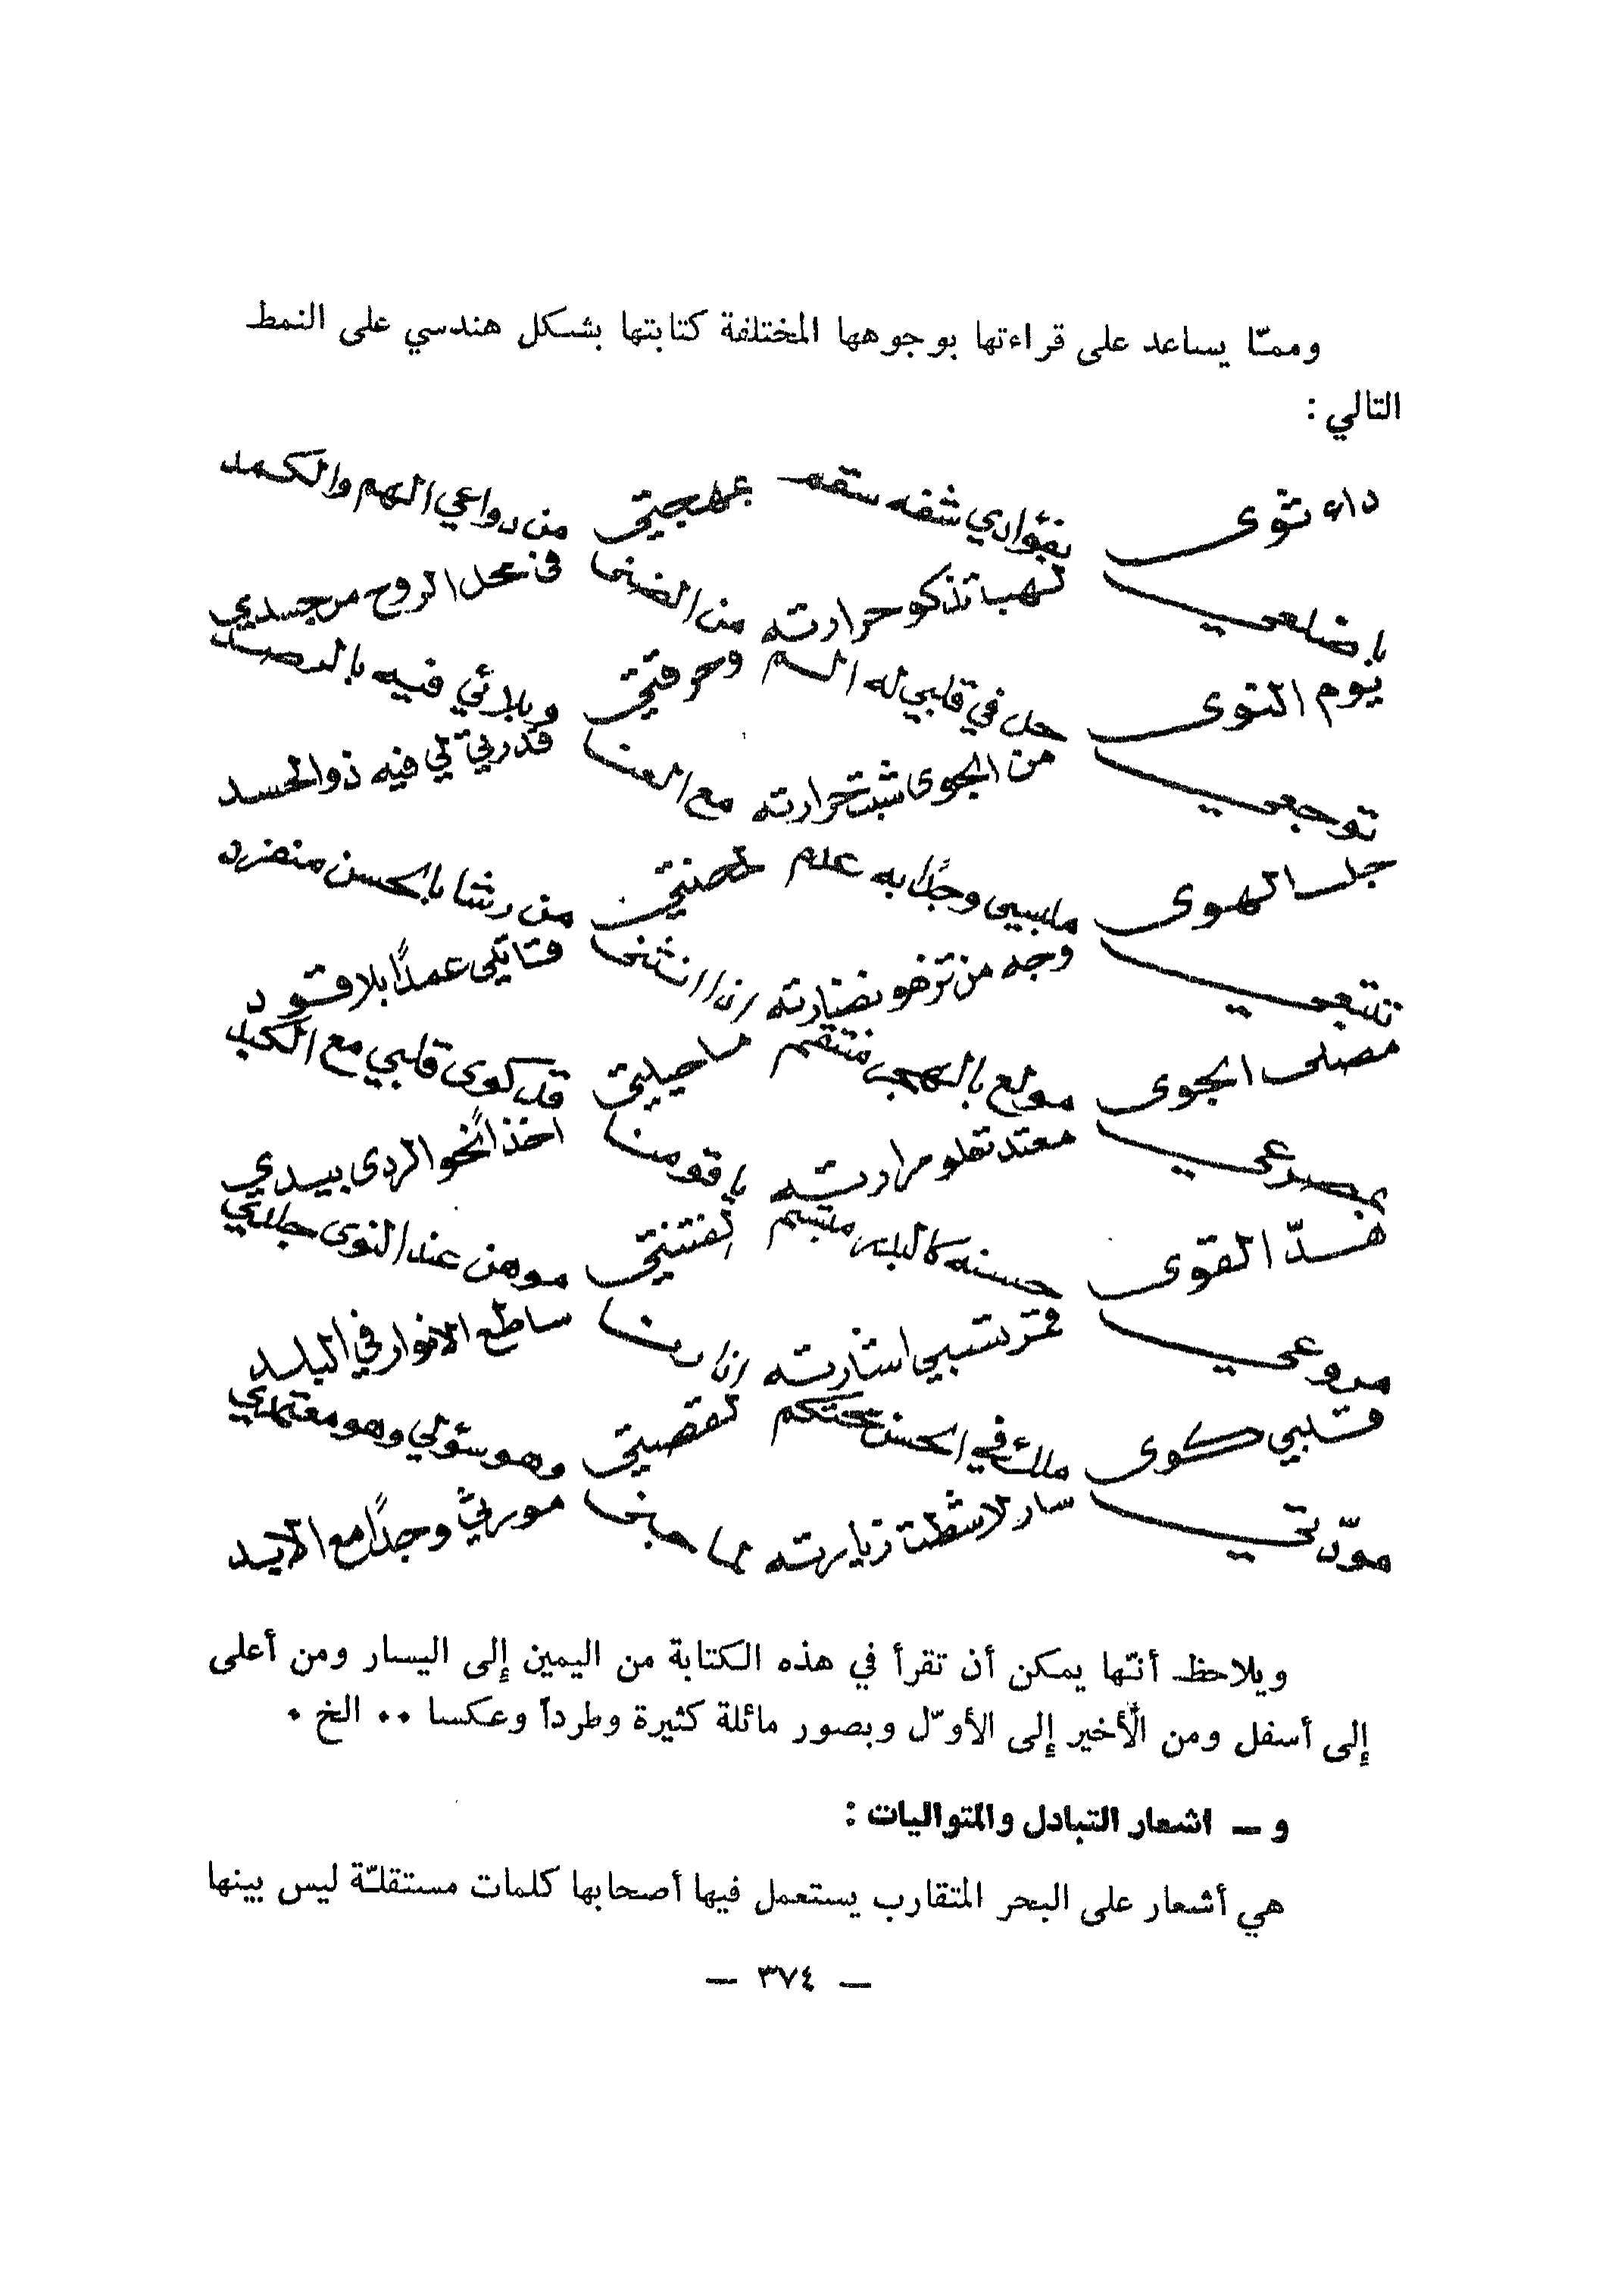 وممّا يساعد على قراءتها بوجوهها المختلفة كتابتها بشكل هندسي على النمط
التالي :
داء ثوى بفؤادي شفه سقم بمهجتي من دواعي الهم والكمد
بأضلعي لهب تذكو حرارته من الضنى في محل الروح من جسدي
يوم النوى حل في قلبي له ألم وحرقتي وبلائي فيه بالرصد
توجعي من الجوى شبت حرارته مع العنا قد رثى لي فيه ذو الحسد
جل الهوى ملبسي وجدًا به علم لمحنتي من رشا بالحسن منفرد
تتبعي وجه من تزهو نضارته إذا انثنى قاتلي عمدًا بلا قود
مصلى الجوى مولع بالهجر منتقم ما حيلتي قد كوى قلبي مع الكبد
بمصرعي معتد تحلو مرارته يا قومنا آخذًا نحو الردى بيدي
هدّ القوى حسنه كالبدر مبتسم لفتنتي موهن عند النوى جلدي
مروعي قمر تسبي اشارته إذا رنا ساطع الانوار في البلد
قلبي كوى ملك في الحسن محتكم لقصتي وهو سؤلي وهو معتمدي
مودّتي سار لا شطت زيارته لما جنى مورثي وجدًا مع الابد
ويلاحظ أنّها يمكن أن تقرأ في هذه الكتابة من اليمين إلى اليسار ومن أعلى
إلى أسفل ومن الأخير إلى الأوّل وبصور مائلة كثيرة وطرداً وعكسا ٠٠ الخ ٠
و ـ اشعار التبادل والمتواليات :
هي أشعار على البحر المتقارب يستعمل فيها أصحابها كلمات مستقلّة ليس بينها
ـ ٣٧٤ ـ